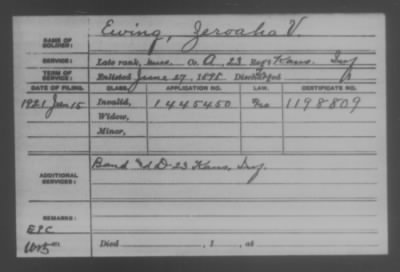 NAME OF SOLDIER: Ewing, Zeroaha V.
SERVICE: Late rank, Co. A, 23 Reg't Kans. Inf
TERM OF SERVICE: Enlisted June 27, 1898, Discharged
DATE OF FILING. CLASS. APPLICATION NO. LAW. CERTIFICATE NO.
1921 Jan 15 Invalid, 1445450 1198809
Widow,
Minor,
ADDITIONAL SERVICES: Band & D-23 Kans, Inf.
REMARKS:
EPC
Died , 1 , at